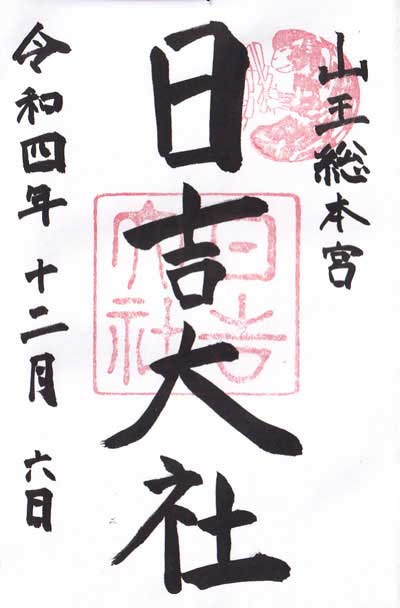 山王総本宮
日吉大社
日吉大社
令和四年 十二月 六日